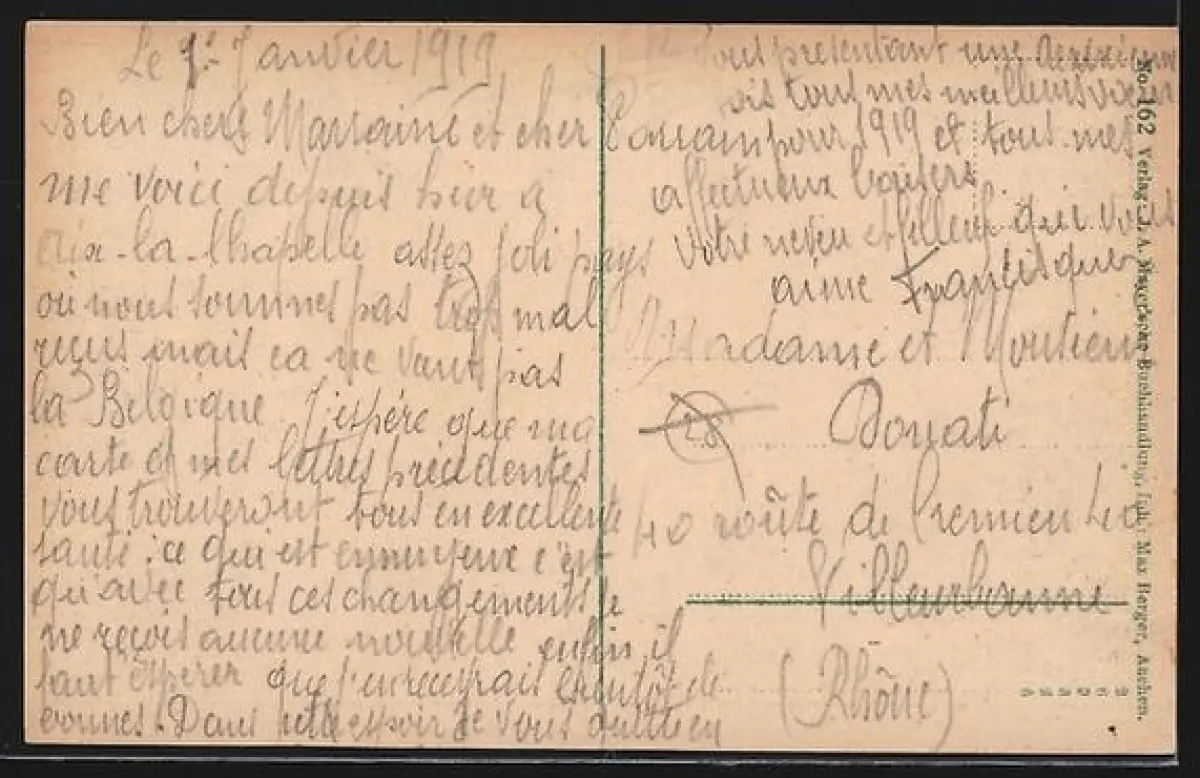 Le 1er Janvier 1919
Bien chers Marraine et cher Parrain
me voici depuis hier à
Aix-la-Chapelle assez joli pays
où nous sommes pas trop mal
reçus mais ca ne vaut pas
la Belgique J'espére que ma
carte et mes lettres précédentes
vous trouveront tous en excellente
santé; ce qui est ennuyeux c'est
qu'avec tous ces changements je
ne reçois aucune nouvelle enfin il
faut éspérer que j'en recevrais bientôt de
bonnes. Dans cette espoir je vous quitte en
vous presentant une
tous mes meilleurs vœux
pour 1919 et tous mes
affectueux baisers
Votre neveu et filleul qui vous
aime Francisque
Madame et Monsieur
Donati
28
40 route de Cremieu 40
Villeurbanne
(Rhône)
No. 162 Verlag: J. A. Mayersche Buchhandlung, Inh. Max Berger, Aachen.